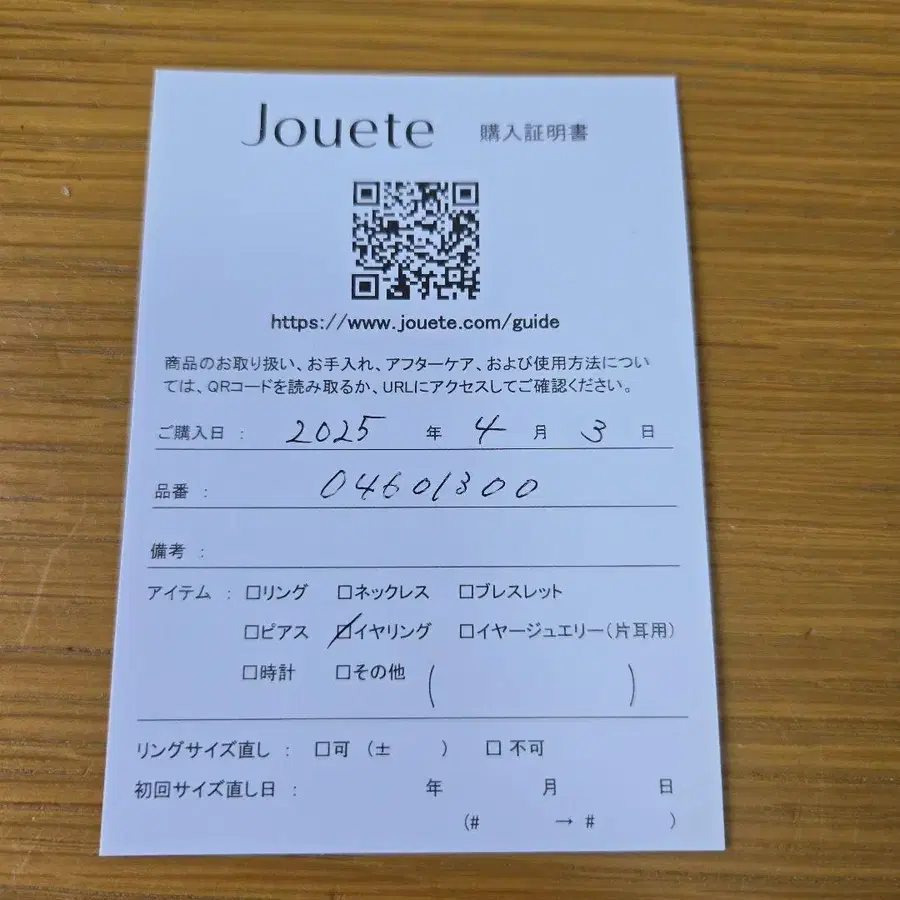 Jouete 購入証明書
https://www.jouete.com/guide
商品のお取り扱い、お手入れ、アフターケア、および使用方法につい
ては、QRコードを読み取るか、URLにアクセスしてご確認ください。
ご購入日 : 2025 年 4 月 3 日
品番 : 04601300
備考 :
アイテム : □リング □ネックレス □ブレスレット
□ピアス ☑イヤリング □イヤージュエリー(片耳用)
□時計 □その他 ( )
リングサイズ直し : □可 (± ) □ 不可
初回サイズ直し日 : 年 月 日
(# → # )